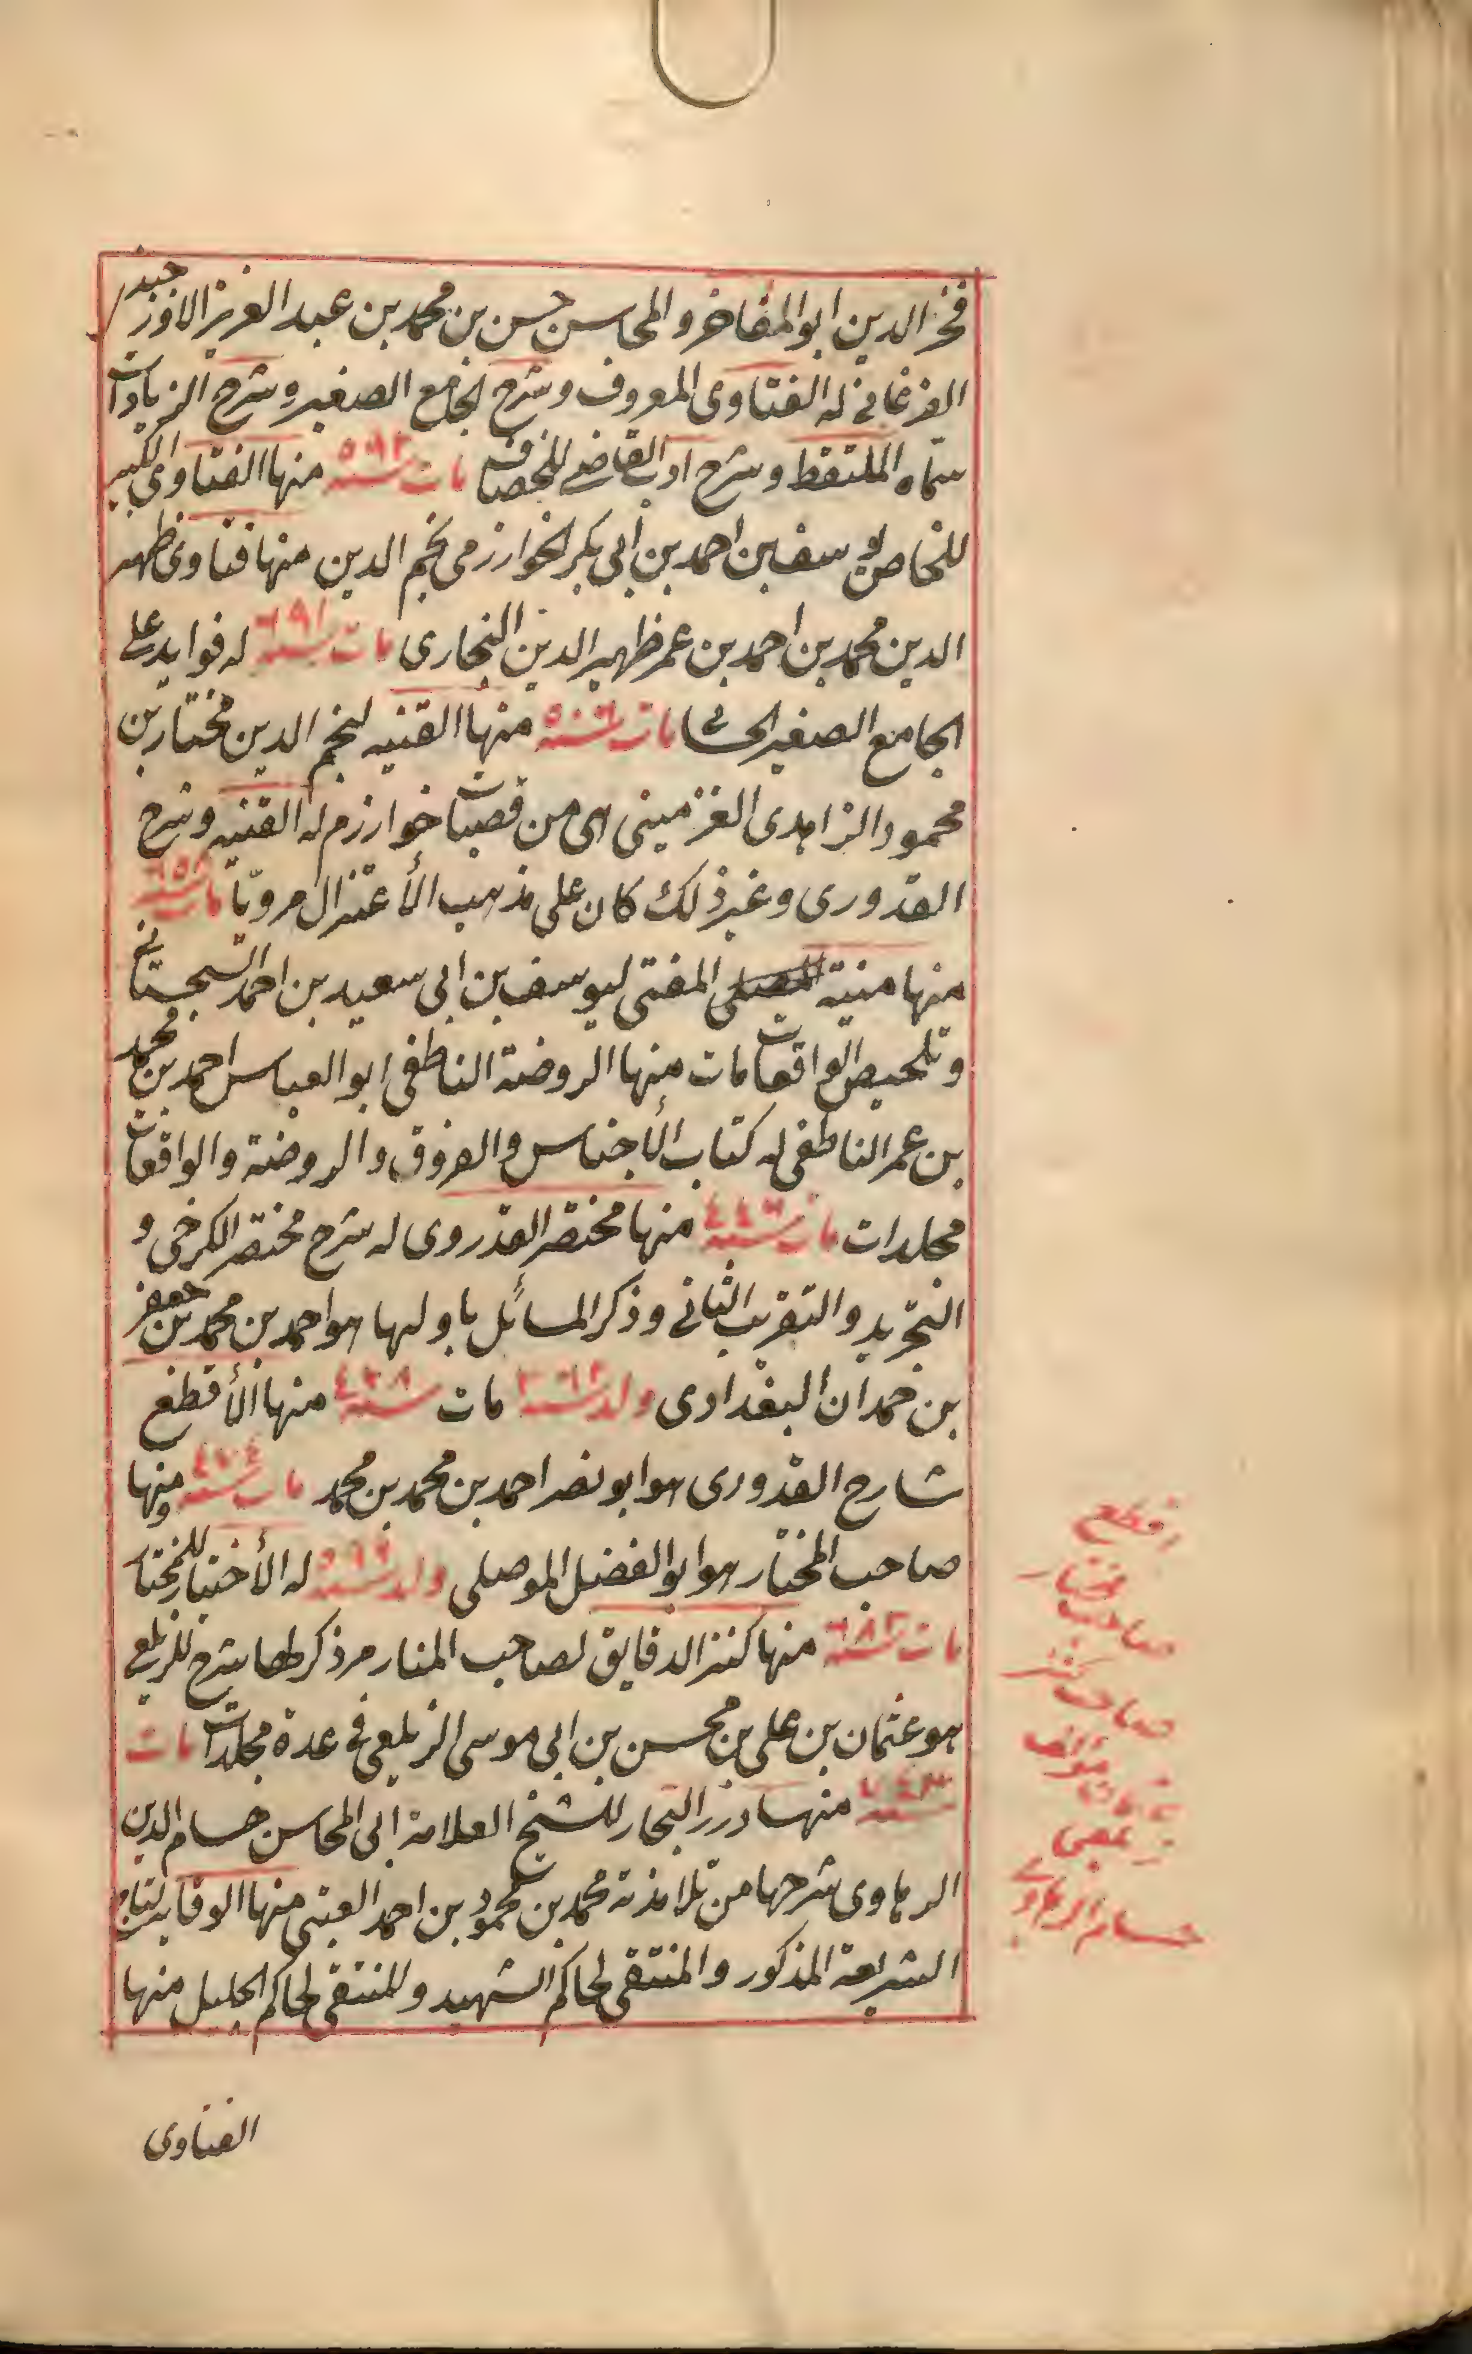 فخر الدين ابو المفاخر والمحاسن حسن بن محمد بن عبد العزيز الاوزجندي
الفرغاني له الفتاوى المعروف وشرح الجامع الصغير وشرح الزيادات
سماه الملتقط وشرح ادب القاضي للخصاف مات سنة ٥٩٢ منها الفتاوى الكبير
للخاصي يوسف بن احمد بن أبي بكر الخوارزمي نجم الدين منها فتاوى ظهير
الدين محمد بن احمد بن عمر ظهير الدين البخارى مات سنة له فوايد على
الجامع الصغير الحسامي مات سنة منها القنيه لنجم الدين مختار بن
محمود الزاهدى الغزمينى اى من قصبات خوارزم له القنيه وشرح
القدورى وغير ذلك كان على مذهب الأعتزال مرويّا مات سنة ٦٥٨
منها منية المفتى ليوسف بن ابى سعيد بن احمد السجستاني
وتلخيص الواقعات مات منها الروضة الناطفى ابو العباس احمد بن محمد
بن عمر الناطفى له كتاب الأجناس والفروق والروضة والواقعات
مجلدات مات سنة ٤٤٦ منها مختصر القدروى له شرح مختصر الكرخى و
التجريد والتقريب الثانى وذكر المسائل باولها هو احمد بن محمد بن جعفر
بن حمدان البغدادى ولد سنة ٣٦٢ مات سنة ٤٢٨ منها الأقطع
شارح القدورى هو ابو نصر احمد بن محمد بن محمد مات سنة ٤٧٤ ومنها
صاحب المختار هو ابو الفضل الموصلى ولد سنة ٥٩٩ له الأختيار للمختار
مات سنة ٦٨٣ منها كنز الدقايق لصاحب المنار مر ذكرها شرح للزيلعى
هو عثمان بن على بن محسن بن ابى موسى الزيلعى فى عدة مجلدات مات
سنة ٧٤٣ منها درر البحار للشيخ العلامة ابى المحاسن حسام الدين
الرهاوى شرحها من تلامذته محمد بن محمود بن احمد العينى منها الوقاية لتاج
الشريعة المذكور والمنتقى لحاكم الشهيد وللمنتقى لحاكم الجليل منها
الفتاوى
اقطع
صاحب مختار
صاحب كنز
حسام الرهاوي